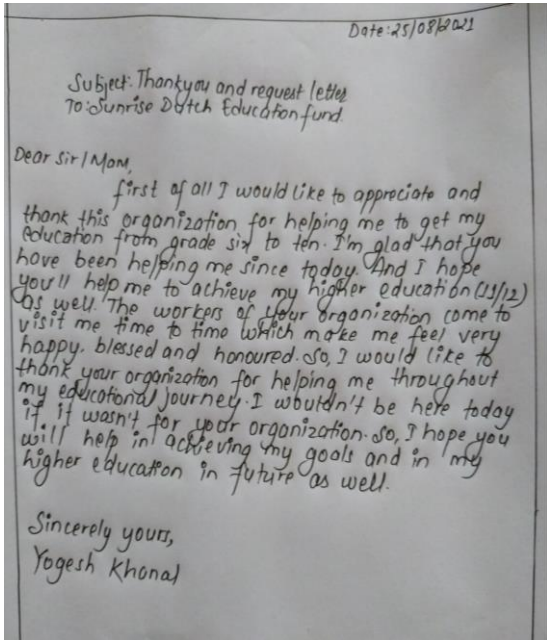 Date:25/08/2021
Subject: Thankyou and request letter
To:Sunrise Dutch Education fund.
Dear Sir/Mam,
first of all I would like to appreciate and
thank this organization for helping me to get my
education from grade six to ten. I'm glad that you
have been helping me since today. And I hope
you'll help me to achieve my higher education (11/12)
as well. The workers of your organization come to
visit me time to time which make me feel very
happy, blessed and honoured. So, I would like to
thank your organization for helping me throughout
my educational journey. I wouldn't be here today
if it wasn't for your organization. So, I hope you
will help in achieving my goals and in my
higher education in future as well.
Sincerely yours,
Yogesh Khanal